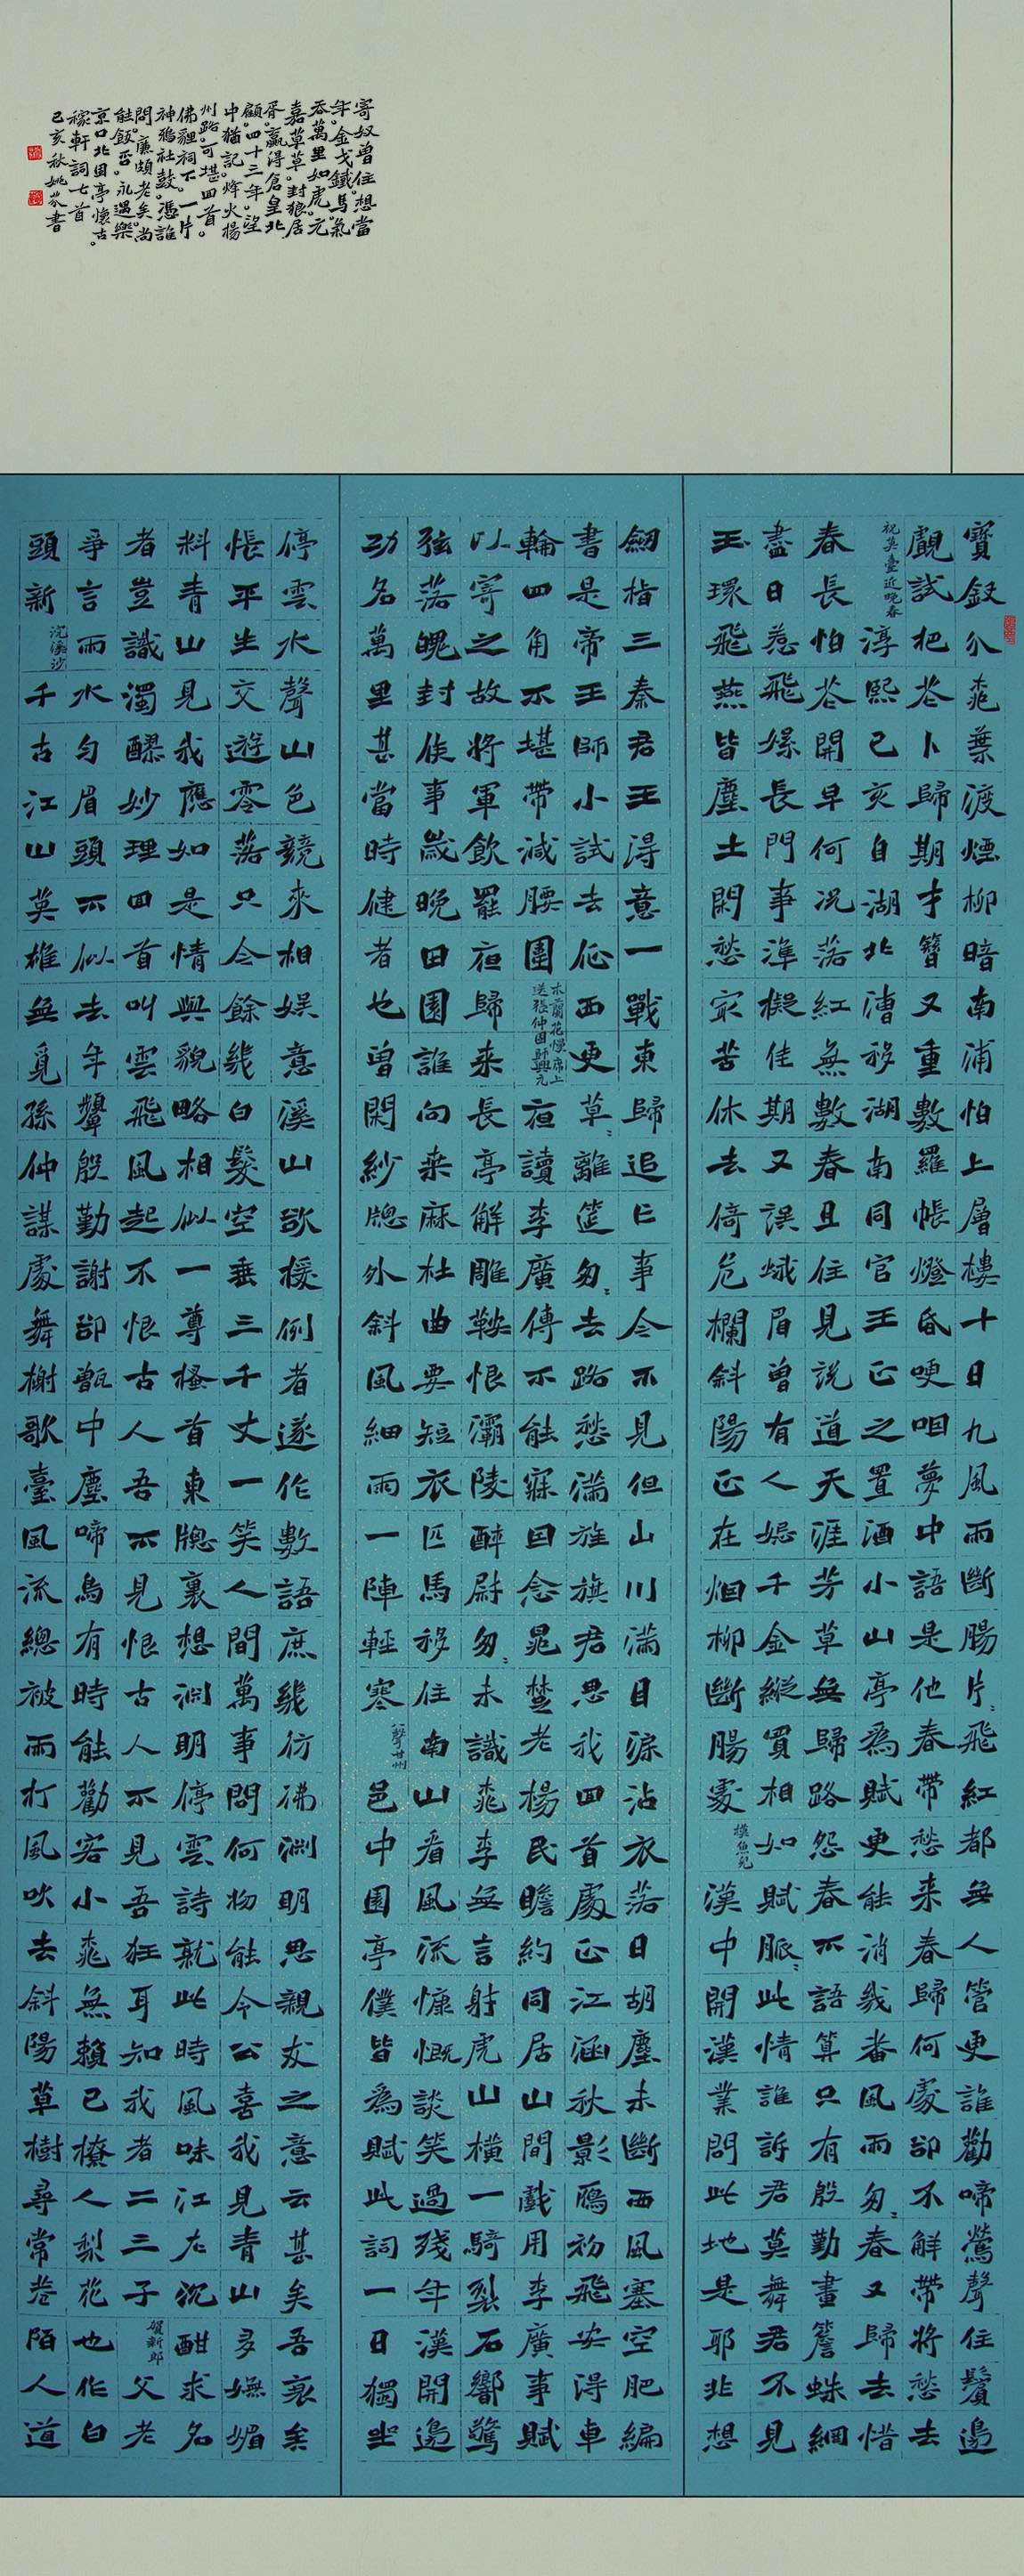 寶釵分桃葉渡煙柳暗南浦怕上層樓十日九風雨斷腸片〻飛紅都無人管更誰勸啼鶯聲住鬢邊
覰試把花卜歸期才簪又重數羅帳燈昏哽咽夢中語是他春帶愁來春歸何處卻不解帶將愁去
祝英臺近晚春 淳熙己亥自湖北漕移湖南同官王正之置酒小山亭為賦更能消幾番風雨匆〻春又歸去惜
春長怕花開早何況落紅無數春且住見說道天涯芳草無歸路怨春不語算只有殷勤畫簷蛛網
盡日惹飛絮長門事準擬佳期又誤蛾眉曾有人妒千金縱買相如賦脈〻此情誰訴君莫舞君不見
玉環飛燕皆塵土閑愁最苦休去倚危欄斜陽正在烟柳斷腸處 摸魚兒 漢中開漢業問此地是耶非想
劍指三秦君王得意一戰東歸追亡事今不見但山川滿目淚沾衣落日胡塵未斷西風塞空肥編
書是帝王師小試去征西更草〻離筵匆〻去路愁滿旌旗君思我回首處正江涵秋影鴈初飛安得車
輪四角不堪帶減腰圍 木蘭花慢席上送張仲固帥興元 夜讀李廣傳不能寐因念晁楚老楊民瞻約同居山間戲用李廣事賦
以寄之故將軍飲罷夜歸來長亭解雕鞍恨灞陵醉尉匆〻未識桃李無言射虎山橫一騎裂石響驚
弦落魄封侯事歲晚田園誰向桑麻杜曲要短衣匹馬移住南山看風流慷慨談笑過殘年漢開邊
功名萬里甚當時健者也曾閑紗窗外斜風細雨一陣輕寒 八聲甘州 邑中園亭僕皆為賦此詞一日獨坐
停雲水聲山色競來相娛意溪山欲援例者遂作數語庶幾彷彿淵明思親友之意云甚矣吾衰矣
悵平生交遊零落只今餘幾白髮空垂三千丈一笑人間萬事問何物能令公喜我見青山多嫵媚
料青山見我應如是情與貌略相似一尊搔首東窗裏想淵明停雲詩就此時風味江左沉酣求名
者豈識濁醪妙理回首叫雲飛風起不恨古人吾不見恨古人不見吾狂耳知我者二三子 賀新郎 父老
爭言雨水勻眉頭不似去年顰殷勤謝卻甑中塵啼鳥有時能勸客小桃無賴已撩人梨花也作白
頭新 浣溪沙 千古江山英雄無覓孫仲謀處舞榭歌臺風流總被雨打風吹去斜陽草樹尋常巷陌人道
寄奴曾住。想當
年。金戈鐵馬。氣
吞萬里如虎。元
嘉草草。封狼居
胥。贏得倉皇北
顧。四十三年。望
中猶記。烽火揚
州路。可堪回首。
佛貍祠下。一片
神鴉社鼓。憑誰
問。廉頗老矣。尚
能飯否。永遇樂
京口北固亭懷古。
稼軒詞七首
己亥秋姚芬書